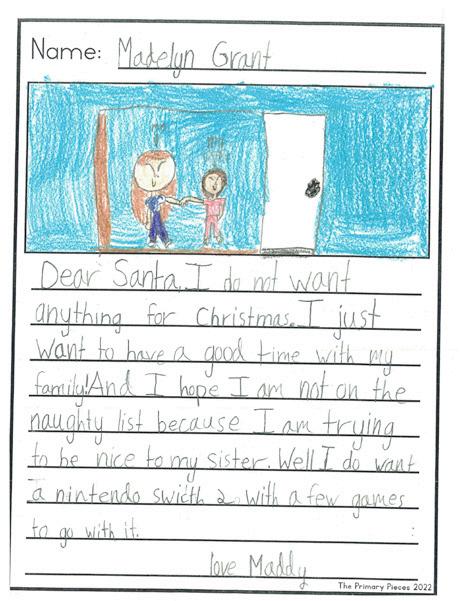 Name: Madelyn Grant
Dear Santa, I do not want
anything for Christmas. I just
want to have a good time with my
family! And I hope I am not on the
naughty list because I am trying
to be nice to my sister. Well I do want
a nintendo swicth 2 with a few games
to go with it.
love Maddy
The Primary Pieces 2022